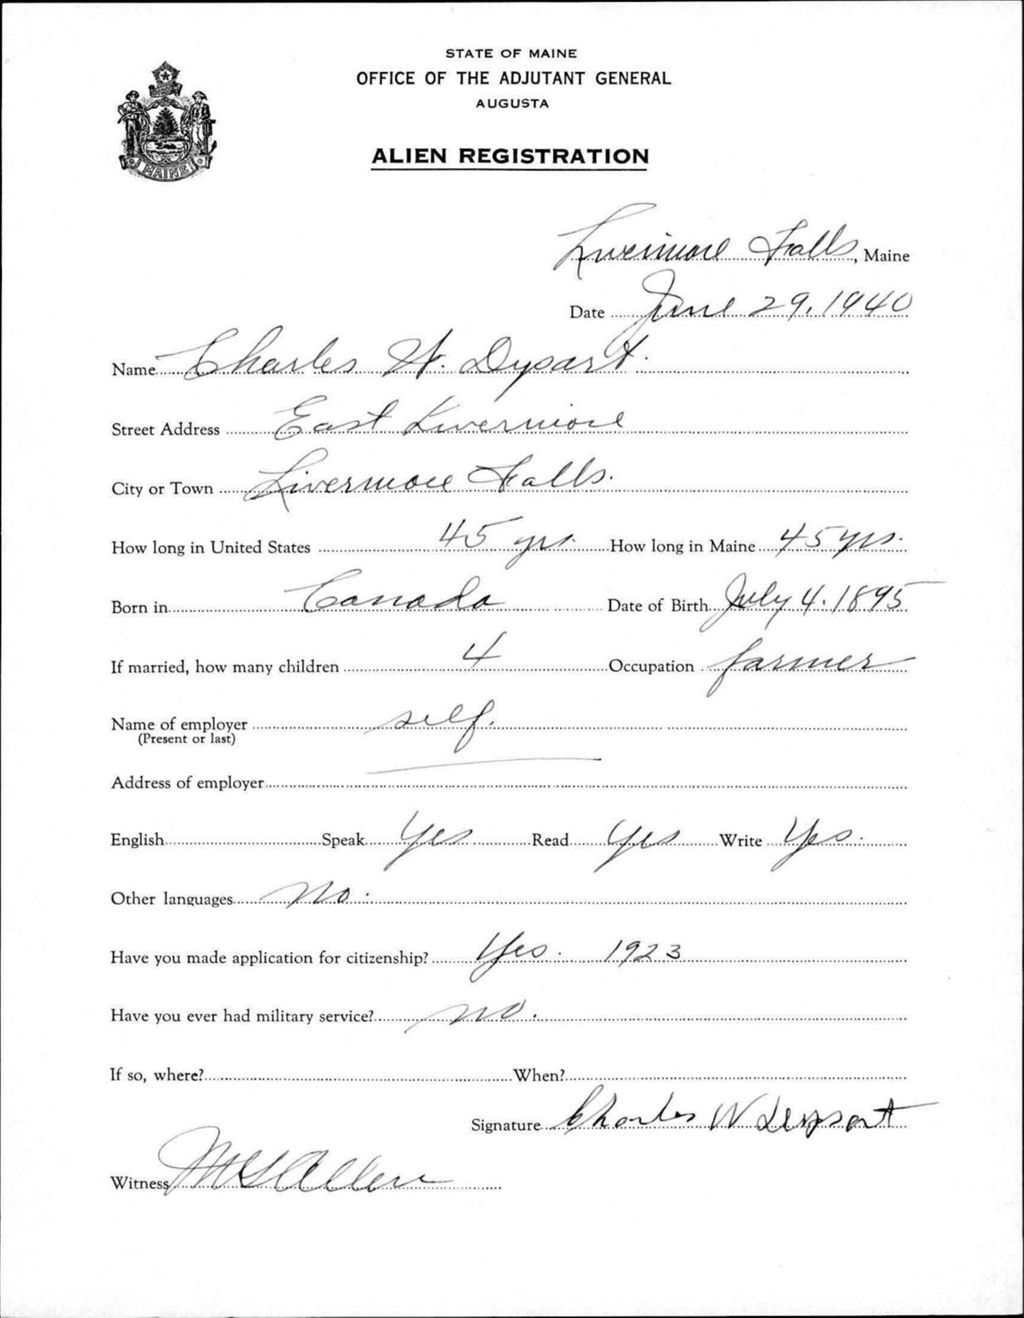 STATE OF MAINE
OFFICE OF THE ADJUTANT GENERAL
AUGUSTA
ALIEN REGISTRATION
MAINE
Livermore Falls, Maine
Date June 29, 1940
Name Charles W. Dysart.
Street Address East Livermore
City or Town Livermore Falls.
How long in United States 45 yrs. How long in Maine 45 yrs.
Born in Canada Date of Birth July 4. 1895
If married, how many children 4 Occupation farmer
Name of employer self.
(Present or last)
Address of employer
English Speak Yes Read Yes Write Yes.
Other languages no.
Have you made application for citizenship? Yes. 1923
Have you ever had military service? no.
If so, where? When?
Signature Charles W Dysart
Witness Allen